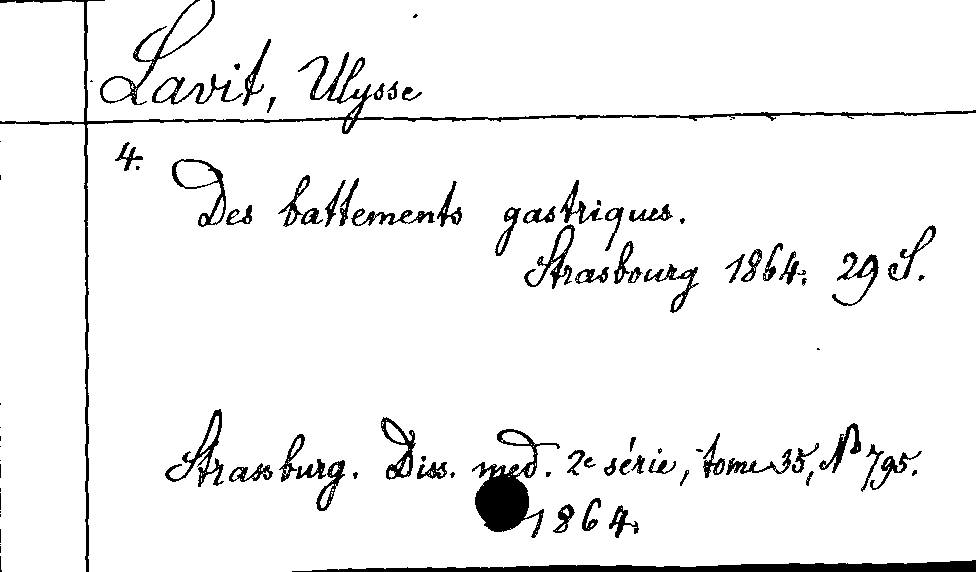 Lavit, Ulysse
4.
Des battements gastriques.
Strasbourg 1864. 29 S.
Strassburg. Diss. med. 2e série, tome 35, No 795.
1864.